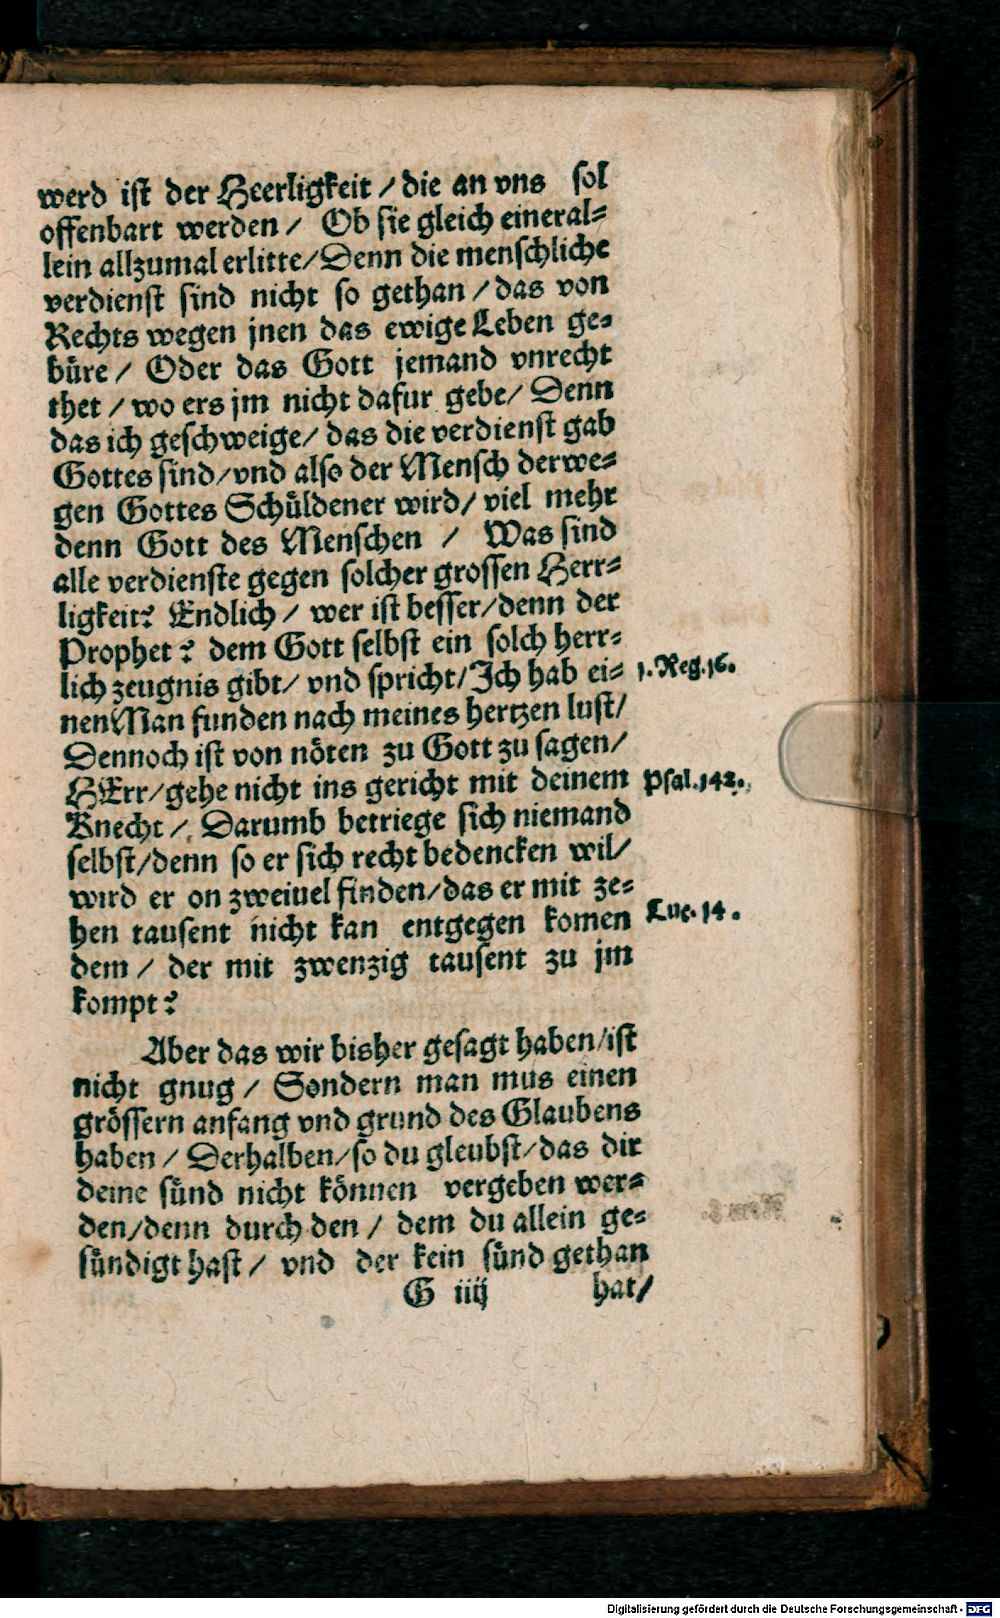 werd ist der Heerligkeit / die an vns sol
offenbart werden / Ob sie gleich eineral⸗
lein allzumal erlitte/Denn die menschliche
verdienst sind nicht so gethan / das von
Rechts wegen jnen das ewige Leben ge⸗
büre / Oder das Gott jemand vnrecht
thet / wo ers jm nicht dafur gebe/ Denn
das ich geschweige/ das die verdienst gab
Gottes sind/vnd also der Mensch derwe⸗
gen Gottes Schüldener wird/ viel mehr
denn Gott des Menschen / Was sind
alle verdienste gegen solcher grossen Herr⸗
ligkeit? Endlich / wer ist besser/denn der
Prophet? dem Gott selbst ein solch herr⸗
lich zeugnis gibt/ vnd spricht/Ich hab ei⸗ 1. Reg. 16.
nen Man funden nach meines hertzen lust/
Dennoch ist von nöten zu Gott zu sagen/
HErr/gehe nicht ins gericht mit deinem Psal. 142.
Knecht / Darumb betriege sich niemand
selbst/denn so er sich recht bedencken wil/
wird er on zweiuel finden/das er mit ze⸗
hen tausent nicht kan entgegen komen Luc. 14.
dem / der mit zwenzig tausent zu jm
kompt?
Aber das wir bisher gesagt haben/ist
nicht gnug / Sondern man mus einen
grössern anfang vnd grund des Glaubens
haben / Derhalben/so du gleubst/das dir
deine sünd nicht können vergeben wer⸗
den/denn durch den / dem du allein ge⸗
sündigt hast / vnd der kein sünd gethan
G iiij hat/
Digitalisierung gefördert durch die Deutsche Forschungsgemeinschaft - DFG